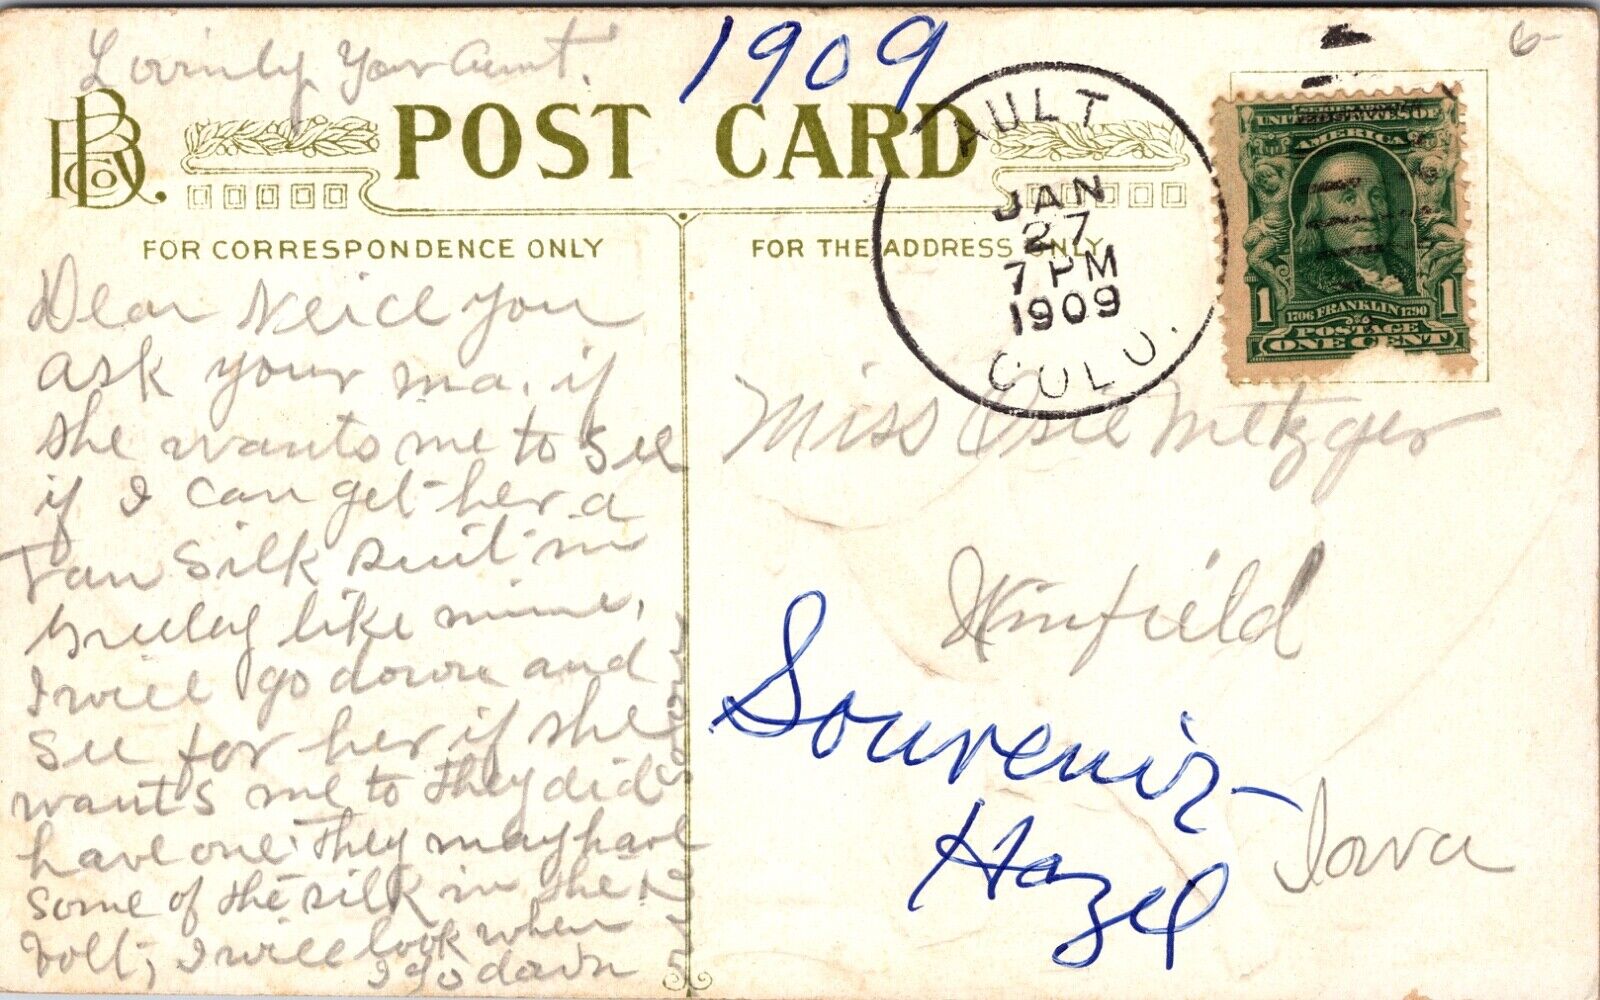 Lovinly Your Aunt.
1909
6-
POST CARD
AULT
JAN
27
7 PM
1909
COLO.
SERIES 1902
UNITED STATES OF
AMERICA
1 1
1706 FRANKLIN 1790
POSTAGE
ONE CENT
FOR CORRESPONDENCE ONLY
FOR THE ADDRESS ONLY
Dear Neice you
ask your ma. if
she wants me to see
if I can get her a
Tan Silk suit in
Greeley like mine,
I will go down and
see for her if she
wants me to they did
have one. They may have
some of the silk in the
bolt, I will look when
I go down
Miss Osie Metzger
Winfield
Iowa
Souvenir-
Hazel